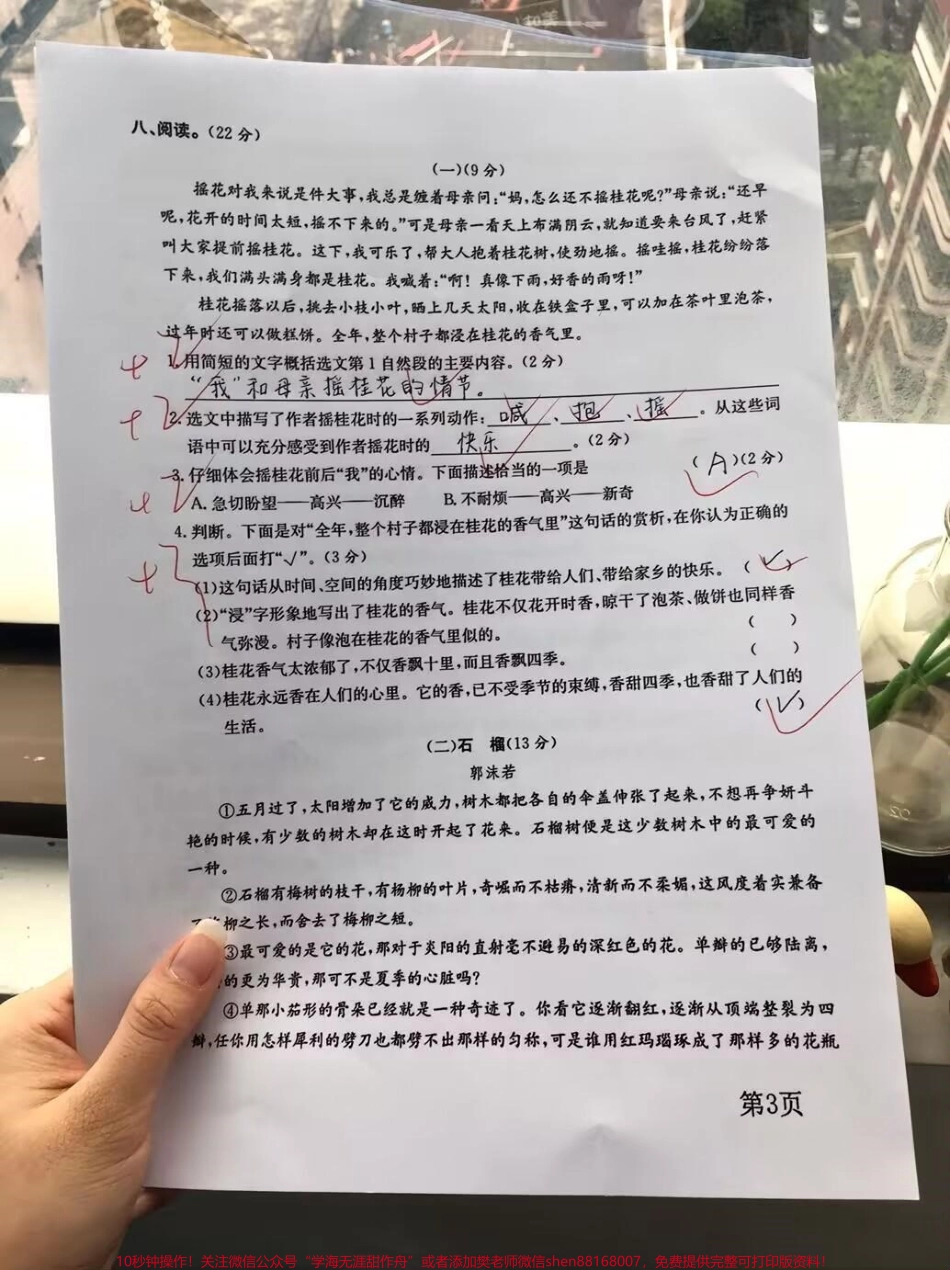 八、阅读。(22分)
(一)(9分)
摇花对我来说是件大事,我总是缠着母亲问:“妈,怎么还不摇桂花呢?”母亲说:“还早
呢,花开的时间太短,摇不下来的。”可是母亲一看天上布满阴云,就知道要来台风了,赶紧
叫大家提前摇桂花。这下,我可乐了,帮大人抱着桂花树,使劲地摇。摇哇摇,桂花纷纷落
下来,我们满头满身都是桂花。我喊着:“啊!真像下雨,好香的雨呀!”
桂花摇落以后,挑去小枝小叶,晒上几天太阳,收在铁盒子里,可以加在茶叶里泡茶,
过年时还可以做糕饼。全年,整个村子都浸在桂花的香气里。
1.用简短的文字概括选文第1自然段的主要内容。(2分)
“我”和母亲摇桂花的情节。
2.选文中描写了作者摇桂花时的一系列动作:喊、抱、摇。从这些词
语中可以充分感受到作者摇花时的快乐。(2分)
3.仔细体会摇桂花前后“我”的心情。下面描述恰当的一项是 (A)(2分)
A.急切盼望——高兴——沉醉 B.不耐烦——高兴——新奇
4.判断。下面是对“全年,整个村子都浸在桂花的香气里”这句话的赏析,在你认为正确的
选项后面打“√”。(3分)
(1)这句话从时间、空间的角度巧妙地描述了桂花带给人们、带给家乡的快乐。(√)
(2)“浸”字形象地写出了桂花的香气。桂花不仅花开时香,晾干了泡茶、做饼也同样香
气弥漫。村子像泡在桂花的香气里似的。 ( )
(3)桂花香气太浓郁了,不仅香飘十里,而且香飘四季。 ( )
(4)桂花永远香在人们的心里。它的香,已不受季节的束缚,香甜四季,也香甜了人们的
生活。 (√)
(二)石 榴(13分)
郭沫若
①五月过了,太阳增加了它的威力,树木都把各自的伞盖伸张了起来,不想再争妍斗
艳的时候,有少数的树木却在这时开起了花来。石榴树便是这少数树木中的最可爱的
一种。
②石榴有梅树的枝干,有杨柳的叶片,奇崛而不枯瘠,清新而不柔媚,这风度着实兼备
柳之长,而舍去了梅柳之短。
③最可爱的是它的花,那对于炎阳的直射毫不避易的深红色的花。单瓣的已够陆离,
的更为华贵,那可不是夏季的心脏吗?
④单那小茄形的骨朵已经就是一种奇迹了。你看它逐渐翻红,逐渐从顶端整裂为四
瓣,任你用怎样犀利的劈刀也都劈不出那样的匀称,可是谁用红玛瑙琢成了那样多的花瓶
第3页
10秒钟操作!关注微信公众号“学海无涯甜作舟”或者添加樊老师微信shen88168007,免费提供完整可打印版资料!